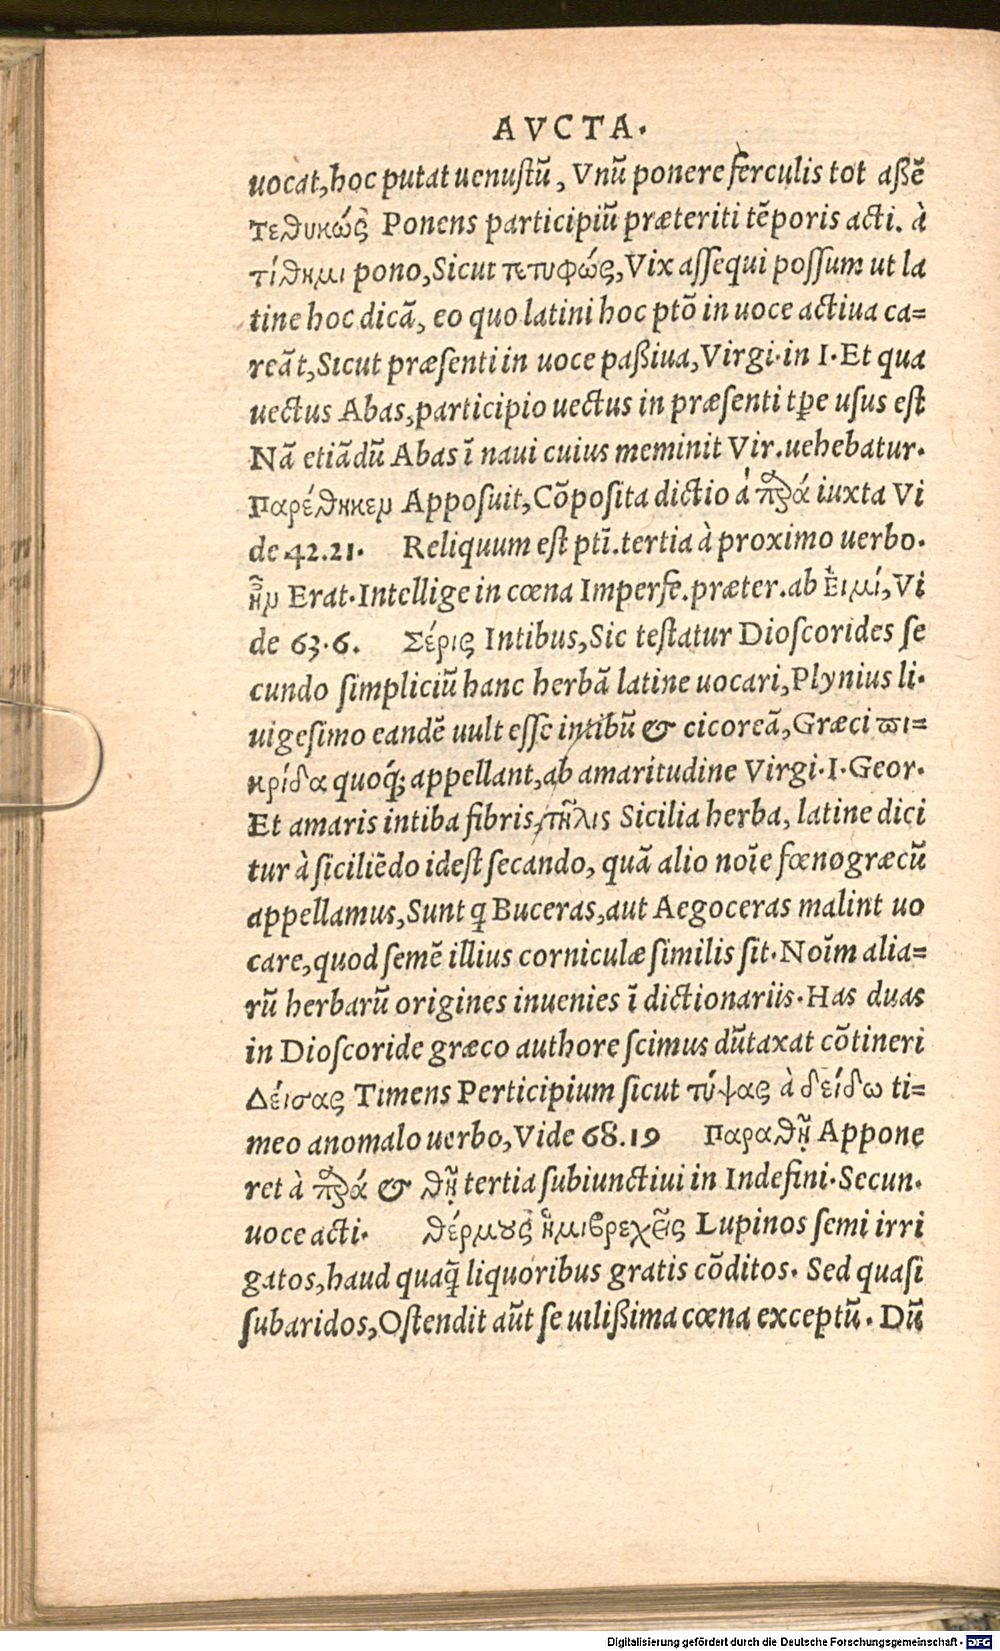 AVCTA.
uocat, hoc putat uenustũ, Vnũ ponere ferculis tot aßẽ
Τεθυκώς Ponens participiũ præteriti tẽporis acti. à
τίθημι pono, Sicut τετυφώς, Vix assequi possum ut la
tine hoc dicã, eo quo latini hoc ptõ in uoce actiua ca=
reãt, Sicut præsenti in uoce paßiua, Virgi. in I. Et qua
uectus Abas, participio uectus in præsenti tꝑe usus est
Nã etiãdũ Abas ĩ naui cuius meminit Vir. uehebatur.
Παρέθηκεν Apposuit, Cõposita dictio à παρά iuxta Vi
de 42.21. Reliquum est ptĩ. tertia à proximo uerbo.
ἦν Erat. Intellige in cœna Imperfe. præter. ab εἰμί, Vi
de 63.6. Σέρις Intibus, Sic testatur Dioscorides se
cundo simpliciũ hanc herbã latine uocari, Plynius li.
uigesimo eandẽ uult esse intibũ & cicoreã, Græci πι=
κρίδα quoq́; appellant, ab amaritudine Virgi. I. Geor.
Et amaris intiba fibris, τῆλις Sicilia herba, latine dici
tur à siciliẽdo idest secando, quã alio noĩe fœnogræcũ
appellamus, Sunt q Buceras, aut Aegoceras malint uo
care, quod semẽ illius corniculæ similis sit. Noĩm alia=
rũ herbarũ origines inuenies ĩ dictionariis. Has duas
in Dioscoride græco authore scimus dũtaxat cõtineri
Δείσας Timens Perticipium sicut τύψας à δείδω ti=
meo anomalo uerbo, Vide 68.19 Παραθῇ Appone
ret à παρά & θῇ tertia subiunctiui in Indefini. Secun.
uoce acti. θέρμους ἡμιβρεχεῖς Lupinos semi irri
gatos, haud quaq̃ liquoribus gratis cõditos. Sed quasi
subaridos, Ostendit aũt se uilißima cœna exceptũ. Dũ
Digitalisierung gefördert durch die Deutsche Forschungsgemeinschaft - DFG